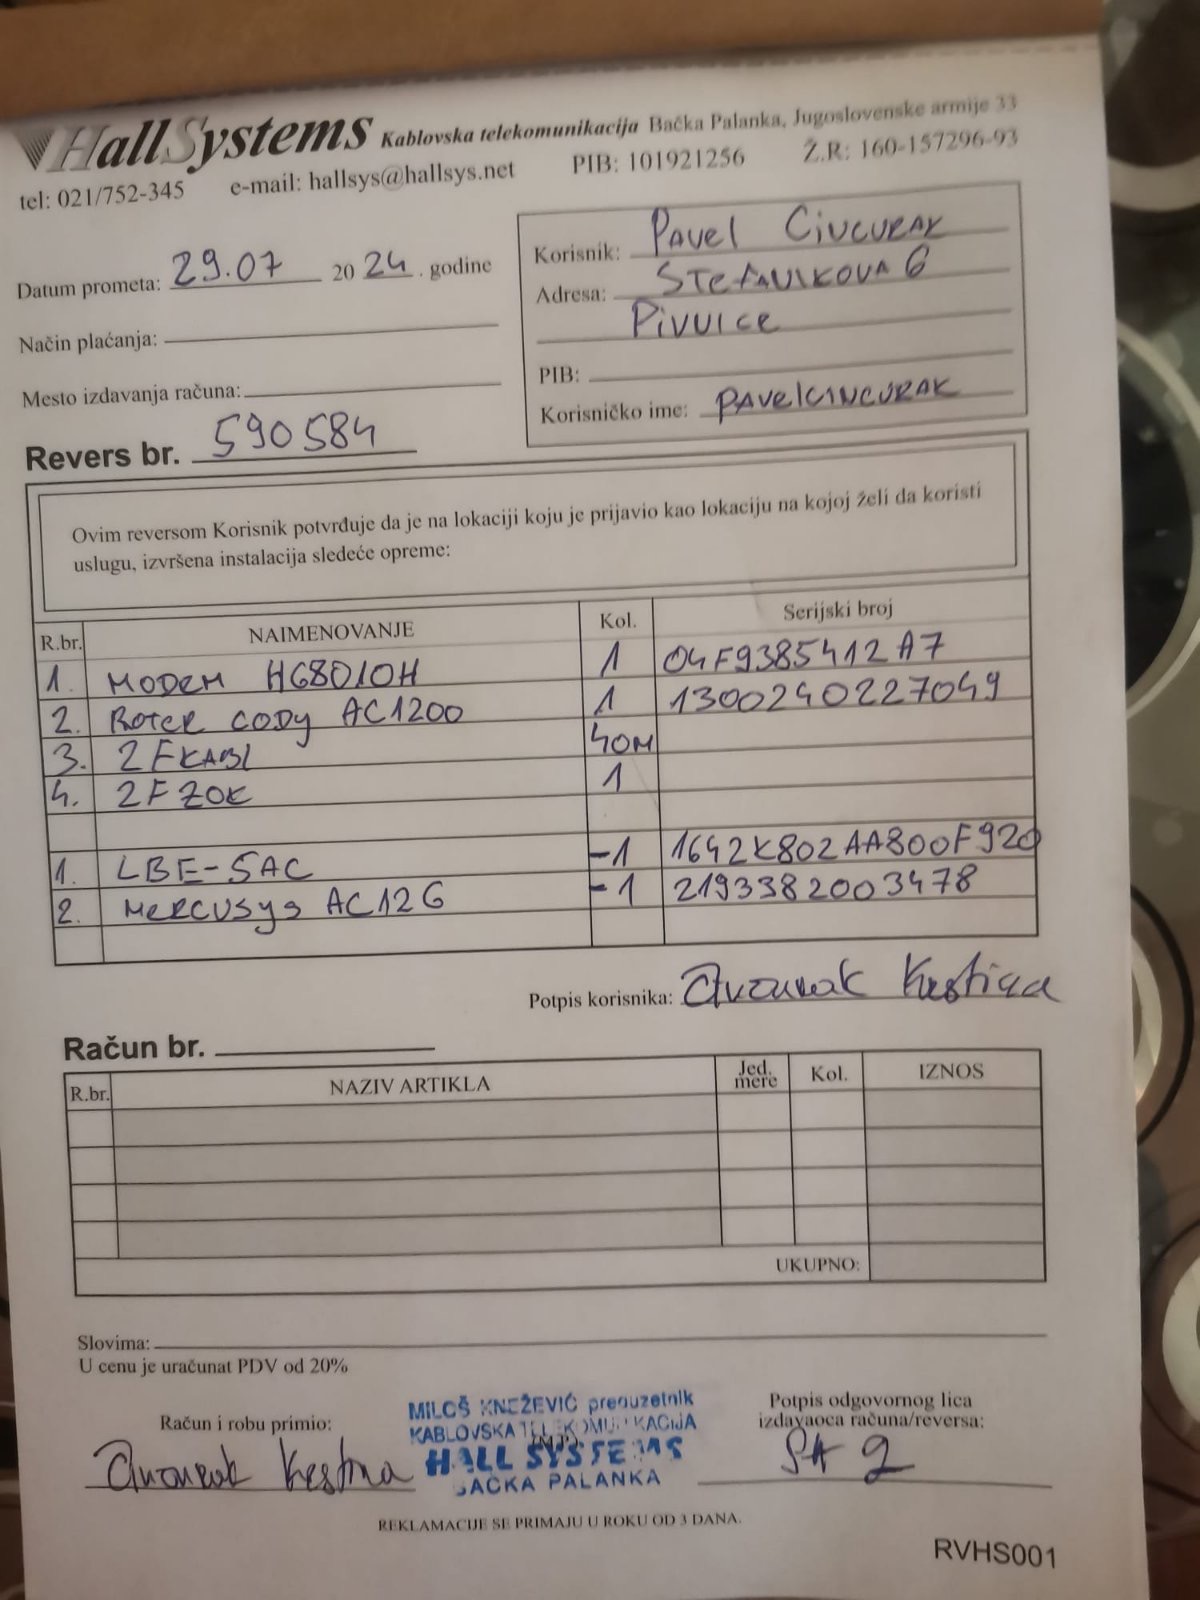 HallSystems Kablovska telekomunikacija Bačka Palanka, Jugoslovenske armije 33
tel: 021/752-345 e-mail: hallsys@hallsys.net PIB: 101921256 Ž.R: 160-157296-93
Datum prometa: 29.07 2024. godine
Način plaćanja:
Mesto izdavanja računa:
Revers br. 590584
Korisnik: PAVEL CINCURAK
Adresa: STEFANIKOVA 6
PIVNICE
PIB:
Korisničko ime: PAVELCINCURAK
Ovim reversom Korisnik potvrđuje da je na lokaciji koju je prijavio kao lokaciju na kojoj želi da koristi
uslugu, izvršena instalacija sledeće opreme:
R.br. NAIMENOVANJE Kol. Serijski broj
1. MODEM HG8010H 1 04F9385412A7
2. ROTER CODY AC1200 1 1300240227049
3. 2FKABL 40M
4. 2F ZOK 1
1. LBE-5AC -1 1642K802AA800F920
2. MERCUSYS AC12G -1 2193382003478
Potpis korisnika:
Račun br.
R.br. NAZIV ARTIKLA Jed. mere Kol. IZNOS
UKUPNO:
Slovima:
U cenu je uračunat PDV od 20%
Račun i robu primio:
MILOŠ KNEŽEVIĆ preduzetnik
KABLOVSKA TELEKOMUNIKACIJA
(M.P.)
HALL SYSTEMS
BAČKA PALANKA
Potpis odgovornog lica
izdavaoca računa/reversa:
REKLAMACIJE SE PRIMAJU U ROKU OD 3 DANA.
RVHS001